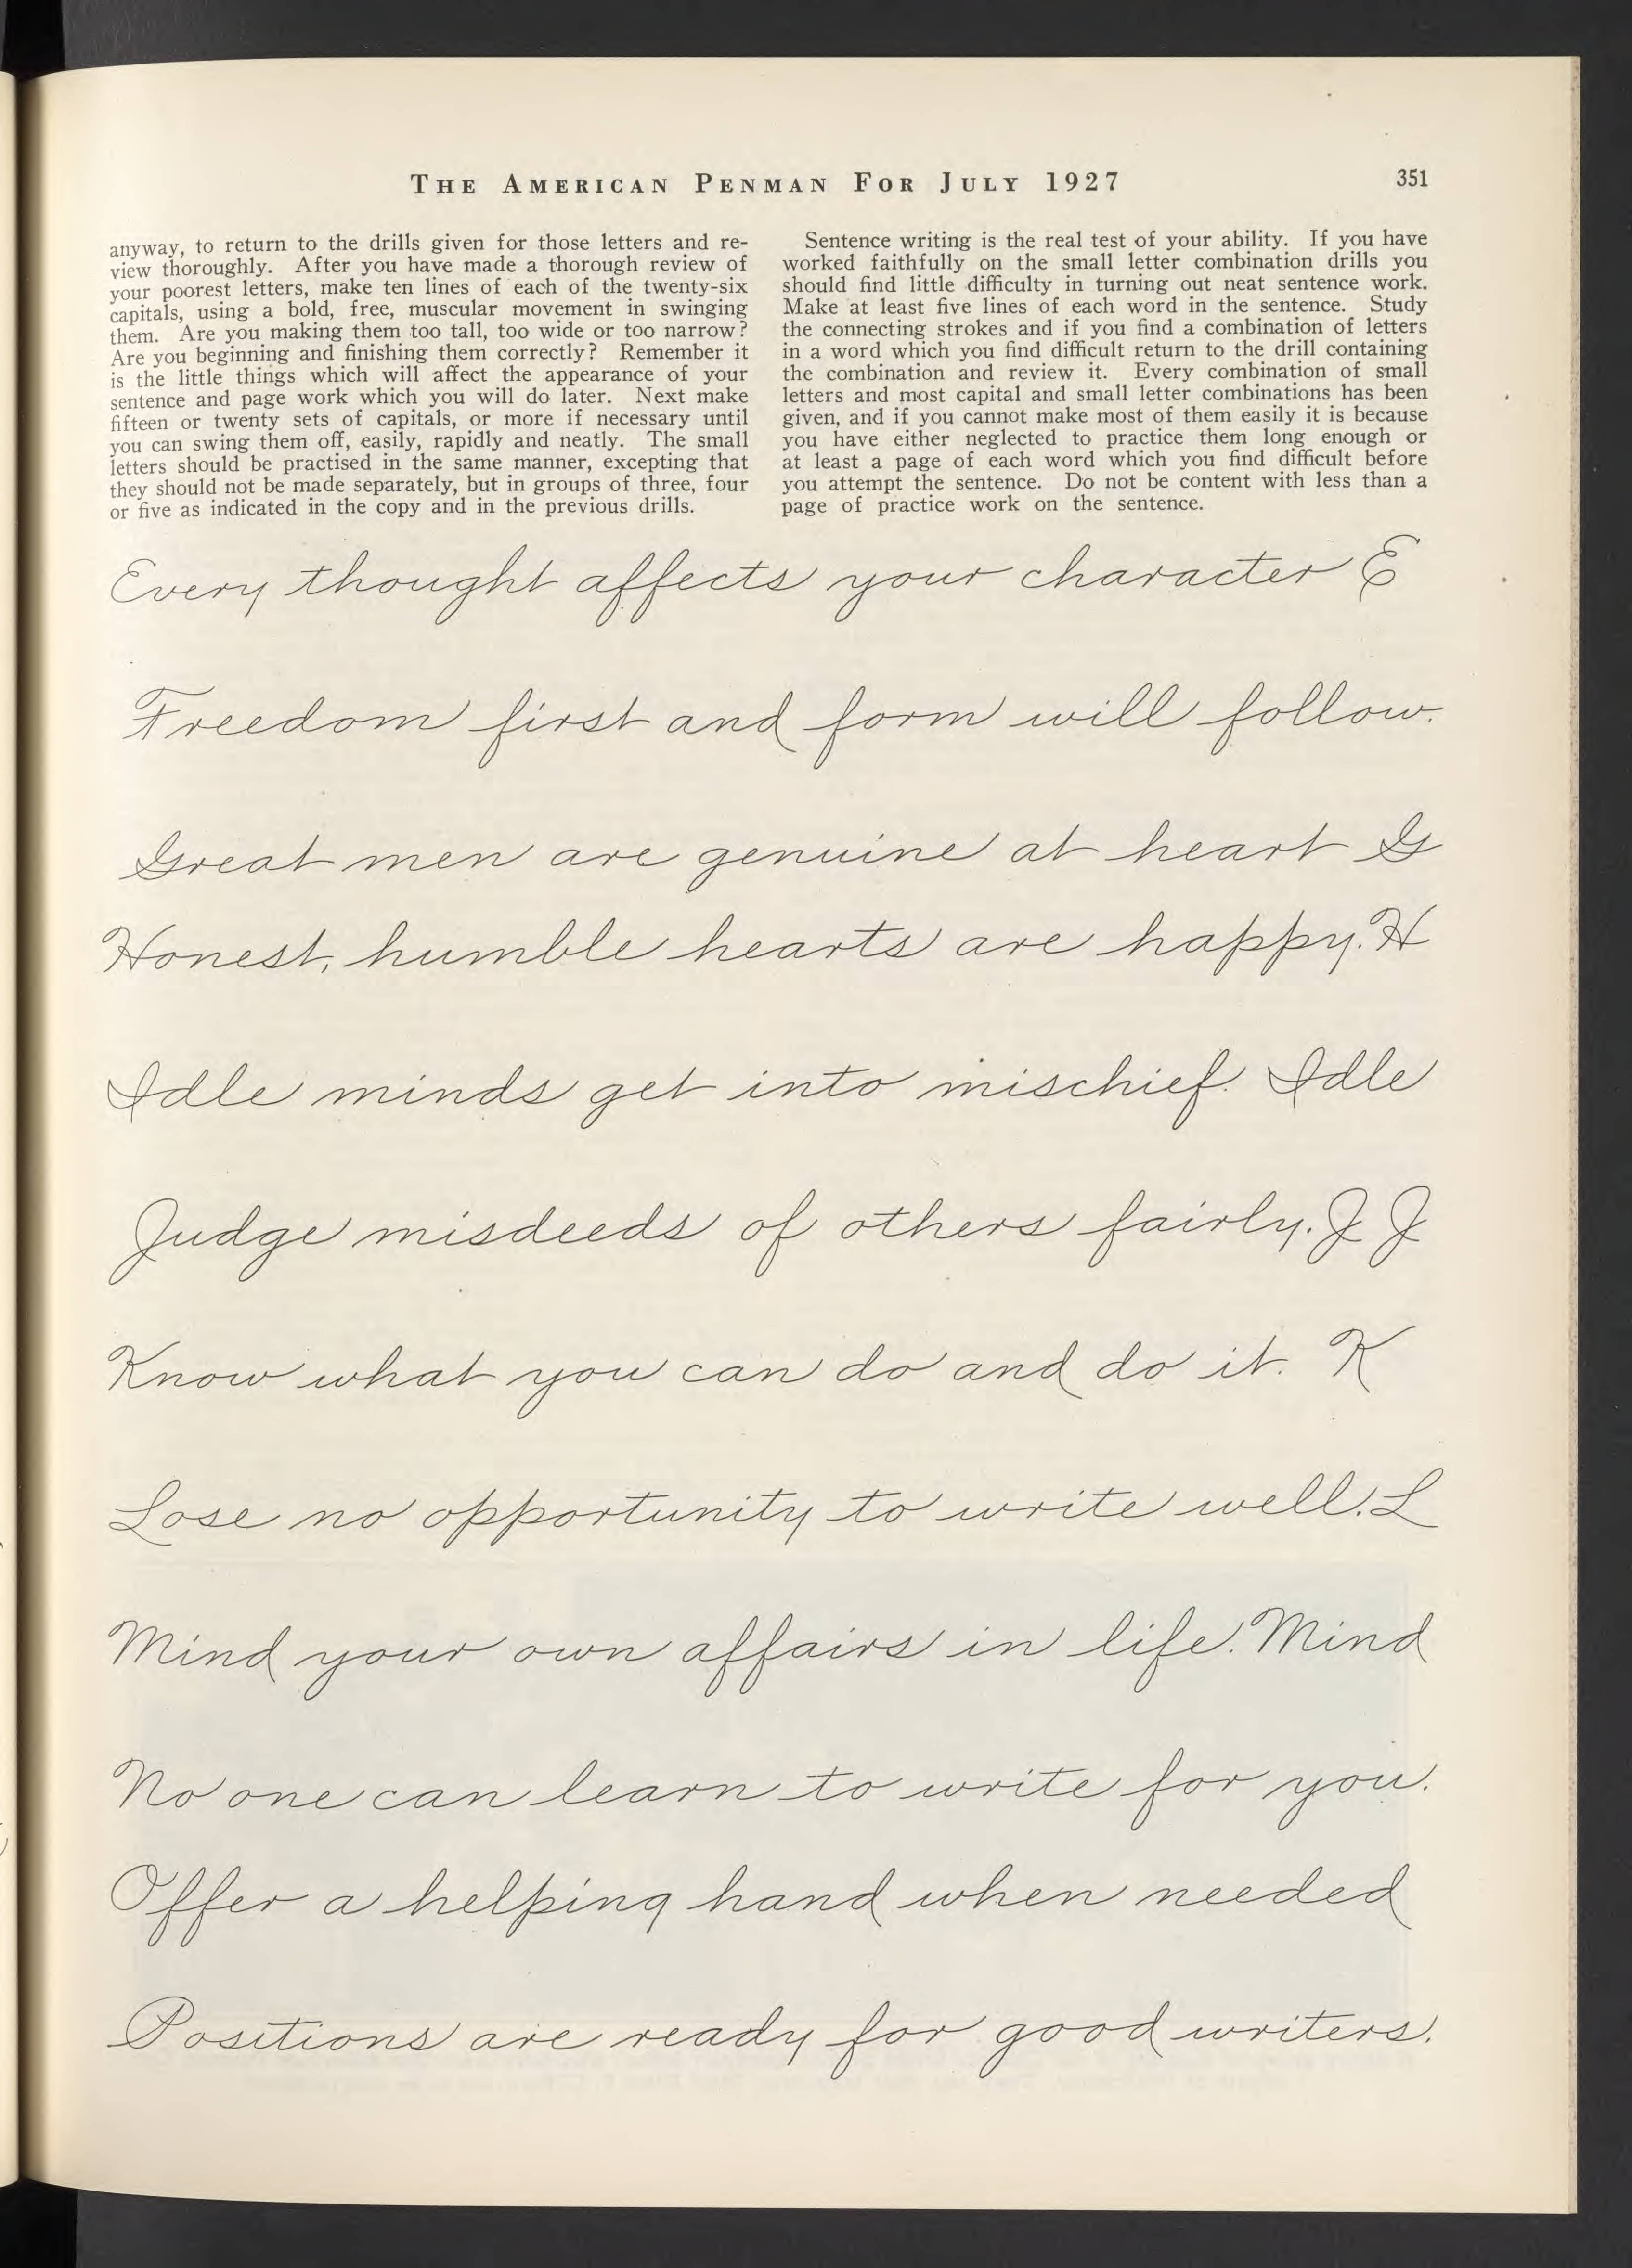 THE AMERICAN PENMAN FOR JULY 1927 351
anyway, to return to the drills given for those letters and re-
view thoroughly. After you have made a thorough review of
your poorest letters, make ten lines of each of the twenty-six
capitals, using a bold, free, muscular movement in swinging
them. Are you making them too tall, too wide or too narrow?
Are you beginning and finishing them correctly? Remember it
is the little things which will affect the appearance of your
sentence and page work which you will do later. Next make
fifteen or twenty sets of capitals, or more if necessary until
you can swing them off, easily, rapidly and neatly. The small
letters should be practised in the same manner, excepting that
they should not be made separately, but in groups of three, four
or five as indicated in the copy and in the previous drills.
Sentence writing is the real test of your ability. If you have
worked faithfully on the small letter combination drills you
should find little difficulty in turning out neat sentence work.
Make at least five lines of each word in the sentence. Study
the connecting strokes and if you find a combination of letters
in a word which you find difficult return to the drill containing
the combination and review it. Every combination of small
letters and most capital and small letter combinations has been
given, and if you cannot make most of them easily it is because
you have either neglected to practice them long enough or
at least a page of each word which you find difficult before
you attempt the sentence. Do not be content with less than a
page of practice work on the sentence.
Every thought affects your character E
Freedom first and form will follow.
Great men are genuine at heart G
Honest, humble hearts are happy. H
Idle minds get into mischief. Idle
Judge misdeeds of others fairly. J J
Know what you can do and do it. K
Lose no opportunity to write well. L
Mind your own affairs in life. Mind
No one can learn to write for you.
Offer a helping hand when needed
Positions are ready for good writers.